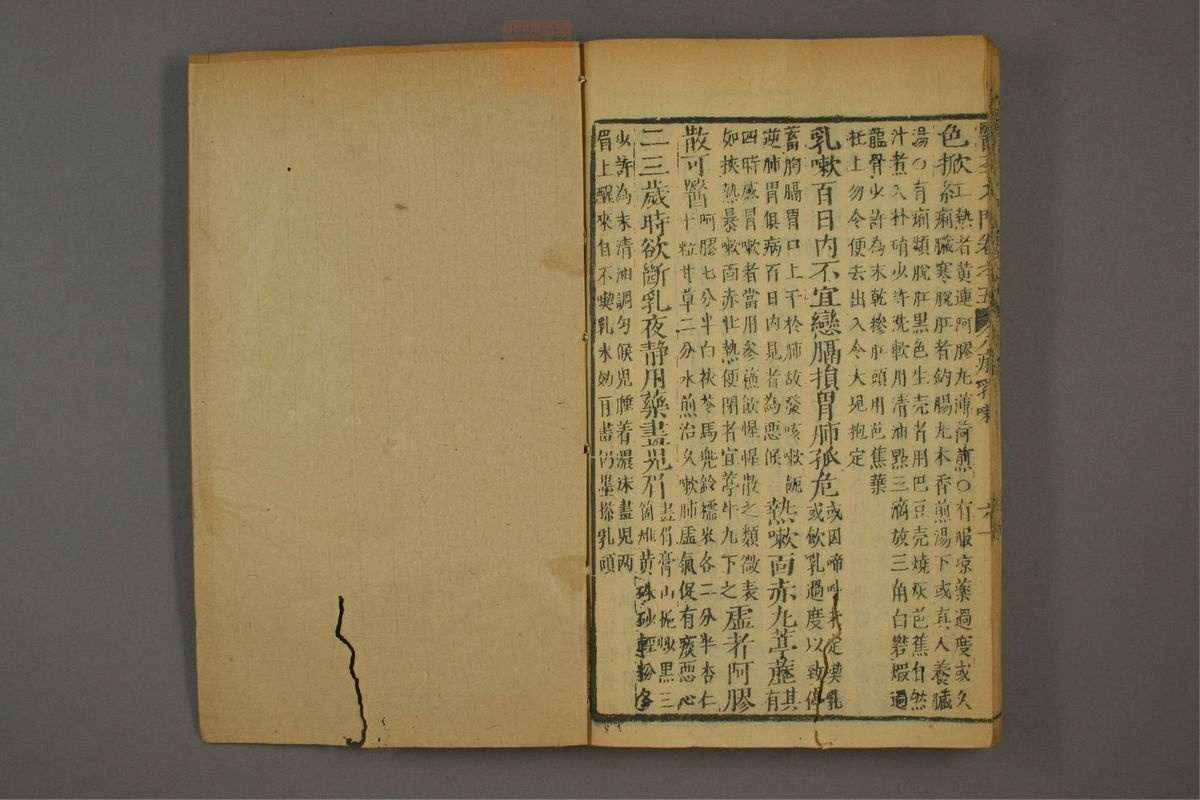 醫學入門卷之五 小兒乳嗽 六一
色掀紅熱者黄連阿膠丸薄荷煎○有服凉藥過度或久
痢臟寒脫肛者鈎腸丸木香煎湯下或真人養臟
湯○有痢頻脫肛黑色生壳者用巴豆壳燒灰芭蕉自然
汁煮入朴硝少許洗軟用清油點三滴放三角白礬煆過
龍骨少許為末乾摻肛頭用芭蕉葉
托上勿令便去出入令大兒抱定
乳嗽百日内不宜戀膈損胃肺孤危
或因啼呌未定喫乳
或飲乳過度以致停
蓄胸膈胃口上干於肺故發咳嗽
逆肺胃俱病百日内見者為惡候
熱嗽面赤丸葶藶
四時感冒嗽者當用參蘓飲惺惺散之類微表
如挾熱暴嗽面赤壯熱便閉者宜葶牛丸下之
虚者阿膠
散可醫
阿膠七分半白茯苓馬兜鈴糯米各二分半杏仁
十粒甘草二分水煎治久嗽肺虚氣促有痰惡心
二三歲時欲斷乳夜静用藥畫兒眉
畫眉膏山梔炒黑三
箇雄黄硃砂輕粉各
少許為末清油調勻候兒睡着濃沫畫兒两
眉上醒來自不喫乳未効再畫仍墨搽乳頭